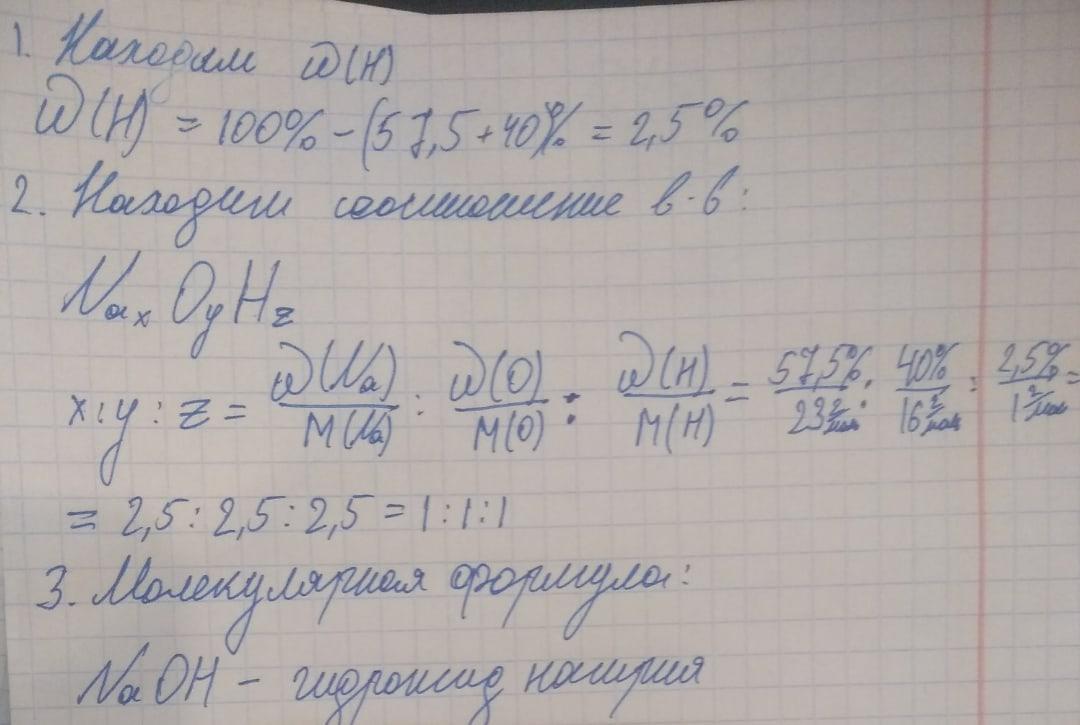 1. Находим ω(H)
ω(H) = 100% - (57,5 + 40)% = 2,5%
2. Находим соотношение в-в:
NaxOyHz
x : y : z = ω(Na)/M(Na) : ω(O)/M(O) : ω(H)/M(H) = 57,5%/23 г/моль : 40%/16 г/моль : 2,5%/1 г/моль =
= 2,5 : 2,5 : 2,5 = 1 : 1 : 1
3. Молекулярная формула:
NaOH - гидроксид натрия